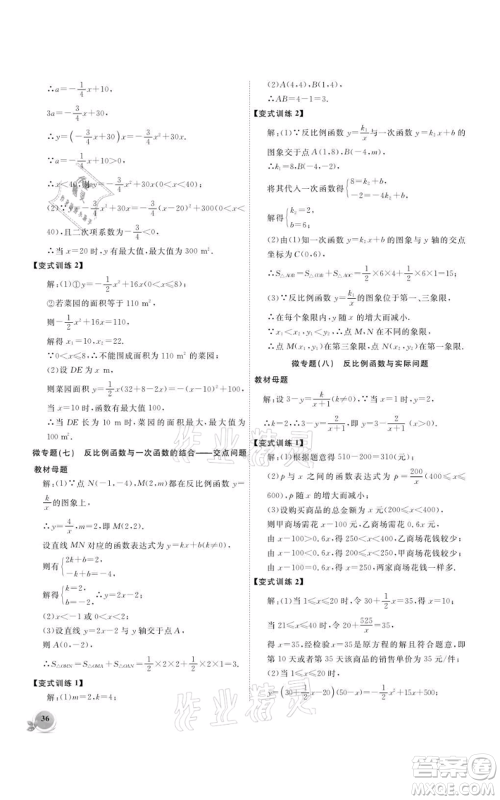 ∴a=-1/4x+10,
3a=-3/4x+30,
∴y=(-3/4x+30)x=-3/4x²+30x.
∵a=-1/4x+10>0,
∴x<40,
(2)∵y=-3/4x²+30x=-3/4(x-20)²+300(0<x<40),且二次项系数为-3/4<0,
∴当x=20时,y有最大值,最大值为300 m².
【变式训练2】
解:(1)①y=-1/2x²+16x(0<x≤8);
②若菜园的面积等于110 m²,
则-1/2x²+16x=110.
解得x₁=10,x₂=22.
∵0<x≤8,
∴不能围成面积为110 m²的菜园.
(2)设DE的长为x m,
菜园面积=1/2x(32+8-2x)=-x²+20x=-(x-10)²+100,
∴当DE长为10 m时,菜园的面积最大,最大值为100 m².
微专题(七) 反比例函数与一次函数的结合——交点问题
教材母题
解:(1)∵点N(-1,-4),M(2,m)在反比例函数y=k/x的图象上,
∴y=4/x,m=2,
设直线MN对应的函数表达式为y=kx+b,
则有{2k+b=2, -k+b=-4,
解得{k=2, b=-2.
(2)x<-1或0<x<2;
(3)设直线y=2x-2与y轴交于点A,
则A(0,-2),
∴S△OMN=S△OMA+S△ONA=1/2×2×2+1/2×2×1=3.
【变式训练1】
解:(1)m=2,k=4;
36
(2)A(4,4),B(4,1),
∴AB=4-1=3.
【变式训练2】
解:(1)∵反比例函数y=k₁/x与一次函数y=k₂x+b的图象交于点A(1,8),B(-4,m),
∴k₁=8,B(-4,-2),
将其代入一次函数得{8=k₂+b, -2=-4k₂+b,
解得{k₂=2, b=6.
(2)由(1)知一次函数y=k₂x+b的图象与y轴的交点坐标为C(0,6),
∴S△AOB=S△COB+S△AOC=1/2×6×4+1/2×6×1=15;
(3)∵反比例函数y=k₁/x的图象位于第一、三象限,
∴在每个象限内,y随x的增大而减小,
∵x₁<x₂,y₁<y₂,
∴点M,N在不同的象限,
∴点M在第三象限,点N在第一象限.
微专题(八) 反比例函数与实际问题
教材母题
解:设3-y=k/(x+1),
∴k=2,∴3-y=2/(x+1),即y=(3x+1)/(x+1)(x≥0).
【变式训练1】
解:(1)根据题意得510-200=310(元).
(2)p与x之间的函数关系式为p=200/x(400≤x≤600),p随x的增大而减小;
(3)购买商品的总金额为x(200≤x<400)元,则甲商场需花x-100元,乙商场需花0.6x元,
由x-100>0.6x,得250<x<400,乙商场花钱较少,
由x-100<0.6x,得200≤x<250,甲商场花钱较少,
由x-100=0.6x,得x=250,两家商场花钱一样多.
【变式训练2】
解:(1)当1≤x≤20时,令30+1/2x=35,得x=10,
当21≤x≤40时,令20+525/x=35,得x=35,经检验x=35是原方程的解且符合题意,
即第10天或者第35天该商品的销售单价为35元/件;
(2)当1≤x≤20时,
y=(30+1/2x-20)(50-x)=-1/2x²+15x+500,
作业精灵